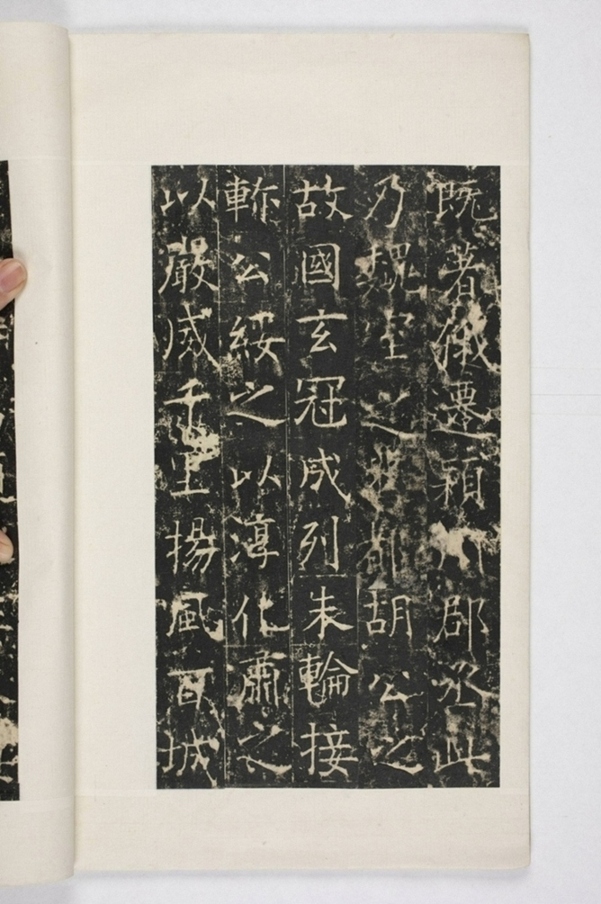 既著俄遷潁川郡丞此
乃魏室之舊都胡公之
故國玄冠成列朱輪接
軫公綏之以淳化肅之
以嚴威千里揚風百城